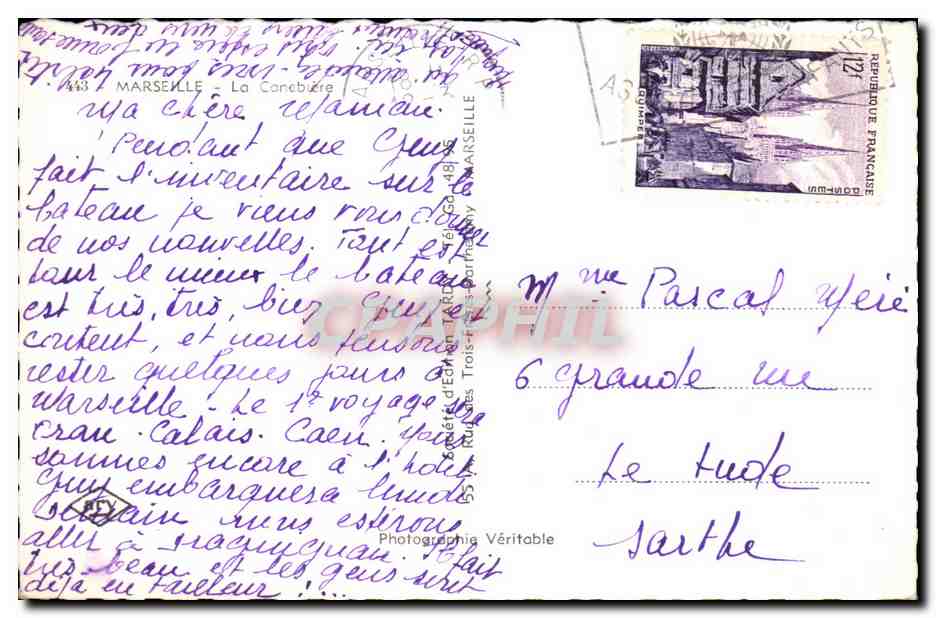 443 MARSEILLE - La Canebière
Ma chère Maman.
Pendant que Guy
fait l'inventaire sur le
bateau je viens vous donner
de nos nouvelles. Tout est
pour le mieux le bateau
est très, très, bien Guy est
content, et nous pensons
rester quelques jours à
Marseille - Le 1er voyage sera
Oran - Calais - Caen. Nous
sommes encore à l'hôtel
Guy embarquera lundi
prochain nous espérons
aller à Draguignan. Il fait
très beau et les gens sont
déjà en tailleur !...
Société d'Édition
55, Rue des Trois-Frères-Barthélemy - MARSEILLE
REX
Photographie Véritable
RÉPUBLIQUE FRANÇAISE
POSTES
12F
QUIMPER
Mme Pascal Méré
6 Grande rue
Le Lude
Sarthe
CPAPHIL